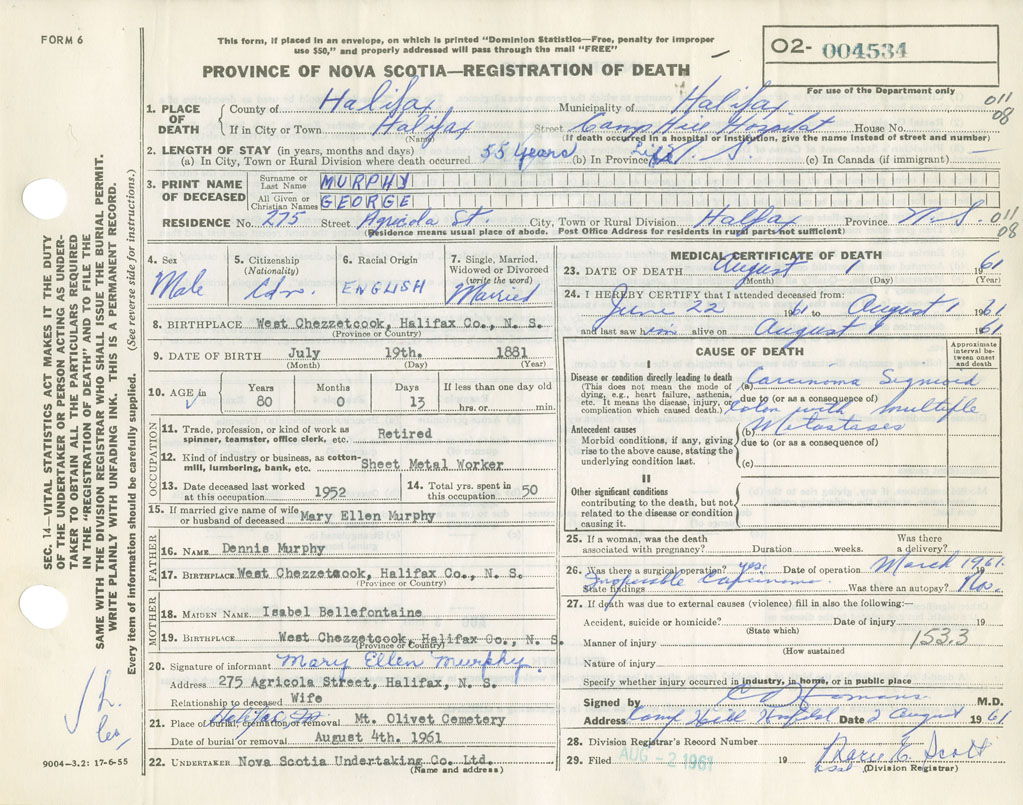 FORM 6
This form, if placed in an envelope, on which is printed "Dominion Statistics—Free, penalty for improper
use $50," and properly addressed will pass through the mail "FREE"
PROVINCE OF NOVA SCOTIA—REGISTRATION OF DEATH
02- 004534
For use of the Department only
SEC. 14—VITAL STATISTICS ACT MAKES IT THE DUTY
OF THE UNDERTAKER OR PERSON ACTING AS UNDER-
TAKER TO OBTAIN ALL THE PARTICULARS REQUIRED
IN THE "REGISTRATION OF DEATH" AND TO FILE THE
SAME WITH THE DIVISION REGISTRAR WHO SHALL ISSUE THE BURIAL PERMIT.
WRITE PLAINLY WITH UNFADING INK. THIS IS A PERMANENT RECORD.
Every item of information should be carefully supplied. (See reverse side for instructions.)
1. PLACE OF DEATH County of Halifax Municipality of Halifax 011 08
If in City or Town Halifax Street Camp Hill Hospital House No.
(Name) (If death occurred in a hospital or institution, give the name instead of street and number)
2. LENGTH OF STAY (in years, months and days)
(a) In City, Town or Rural Division where death occurred 55 years (b) In Province Life N. S. (c) In Canada (if immigrant)
3. PRINT NAME OF DECEASED Surname or Last Name MURPHY
All Given or Christian Names GEORGE
RESIDENCE No. 275 Street Agricola St. City, Town or Rural Division Halifax Province N. S. 011 08
(Residence means usual place of abode. Post Office Address for residents in rural parts not sufficient)
4. Sex Male
5. Citizenship (Nationality) Cdn.
6. Racial Origin ENGLISH
7. Single, Married, Widowed or Divorced (write the word) Married
8. BIRTHPLACE West Chezzetcook, Halifax Co., N. S.
(Province or Country)
9. DATE OF BIRTH July 19th. 1881
(Month) (Day) (Year)
10. AGE in Years 80 Months 0 Days 13 If less than one day old hrs. or min.
OCCUPATION
11. Trade, profession, or kind of work as spinner, teamster, office clerk, etc. Retired
12. Kind of industry or business, as cotton-mill, lumbering, bank, etc. Sheet Metal Worker
13. Date deceased last worked at this occupation 1952
14. Total yrs. spent in this occupation 50
15. If married give name of wife or husband of deceased Mary Ellen Murphy
FATHER
16. NAME Dennis Murphy
17. BIRTHPLACE West Chezzetcook, Halifax Co., N. S.
(Province or Country)
MOTHER
18. MAIDEN NAME Isabel Bellefontaine
19. BIRTHPLACE West Chezzetcook, Halifax Co., N. S.
(Province or Country)
20. Signature of informant Mary Ellen Murphy.
Address 275 Agricola Street, Halifax, N. S.
Relationship to deceased Wife
21. Place of burial, cremation or removal Halifax, Mt. Olivet Cemetery
Date of burial or removal August 4th. 1961
22. UNDERTAKER Nova Scotia Undertaking Co. Ltd.
(Name and address)
9004—3.2: 17-6-55
MEDICAL CERTIFICATE OF DEATH
23. DATE OF DEATH August 1 1961
(Month) (Day) (Year)
24. I HEREBY CERTIFY that I attended deceased from:
June 22 1961 to August 1 1961
and last saw him alive on August 1 1961
CAUSE OF DEATH
Approximate interval between onset and death
I
Disease or condition directly leading to death
(This does not mean the mode of dying, e.g., heart failure, asthenia, etc. It means the disease, injury, or complication which caused death.)
(a) Carcinoma Sigmoid
due to (or as a consequence of)
Colon with multiple
Antecedent causes
Morbid conditions, if any, giving rise to the above cause, stating the underlying condition last.
(b) Metastases
due to (or as a consequence of)
(c)
II
Other significant conditions
contributing to the death, but not related to the disease or condition causing it.
25. If a woman, was the death associated with pregnancy? Duration weeks. Was there a delivery?
26. Was there a surgical operation? yes. Date of operation March 1961 19
State findings Inoperable Carcinoma. Was there an autopsy? No.
27. If death was due to external causes (violence) fill in also the following:—
Accident, suicide or homicide? Date of injury 19
(State which)
Manner of injury 153.3
(How sustained
Nature of injury
Specify whether injury occurred in industry, in home, or in public place
Signed by M.D.
Address Camp Hill Hospital Date 2 August 1961
28. Division Registrar's Record Number
29. Filed AUG -2 1961 19 Marie E. Scott
(Division Registrar)